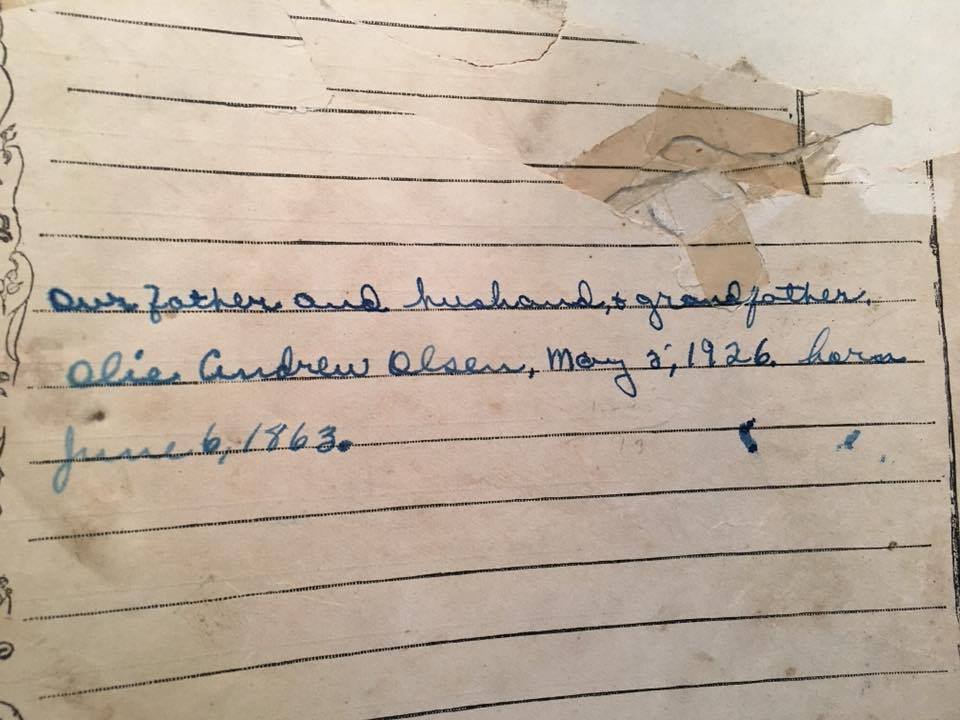 our father and husband, & grandfather.
Olie Andrew Olsen, May 2, 1926. born
June 6, 1863.